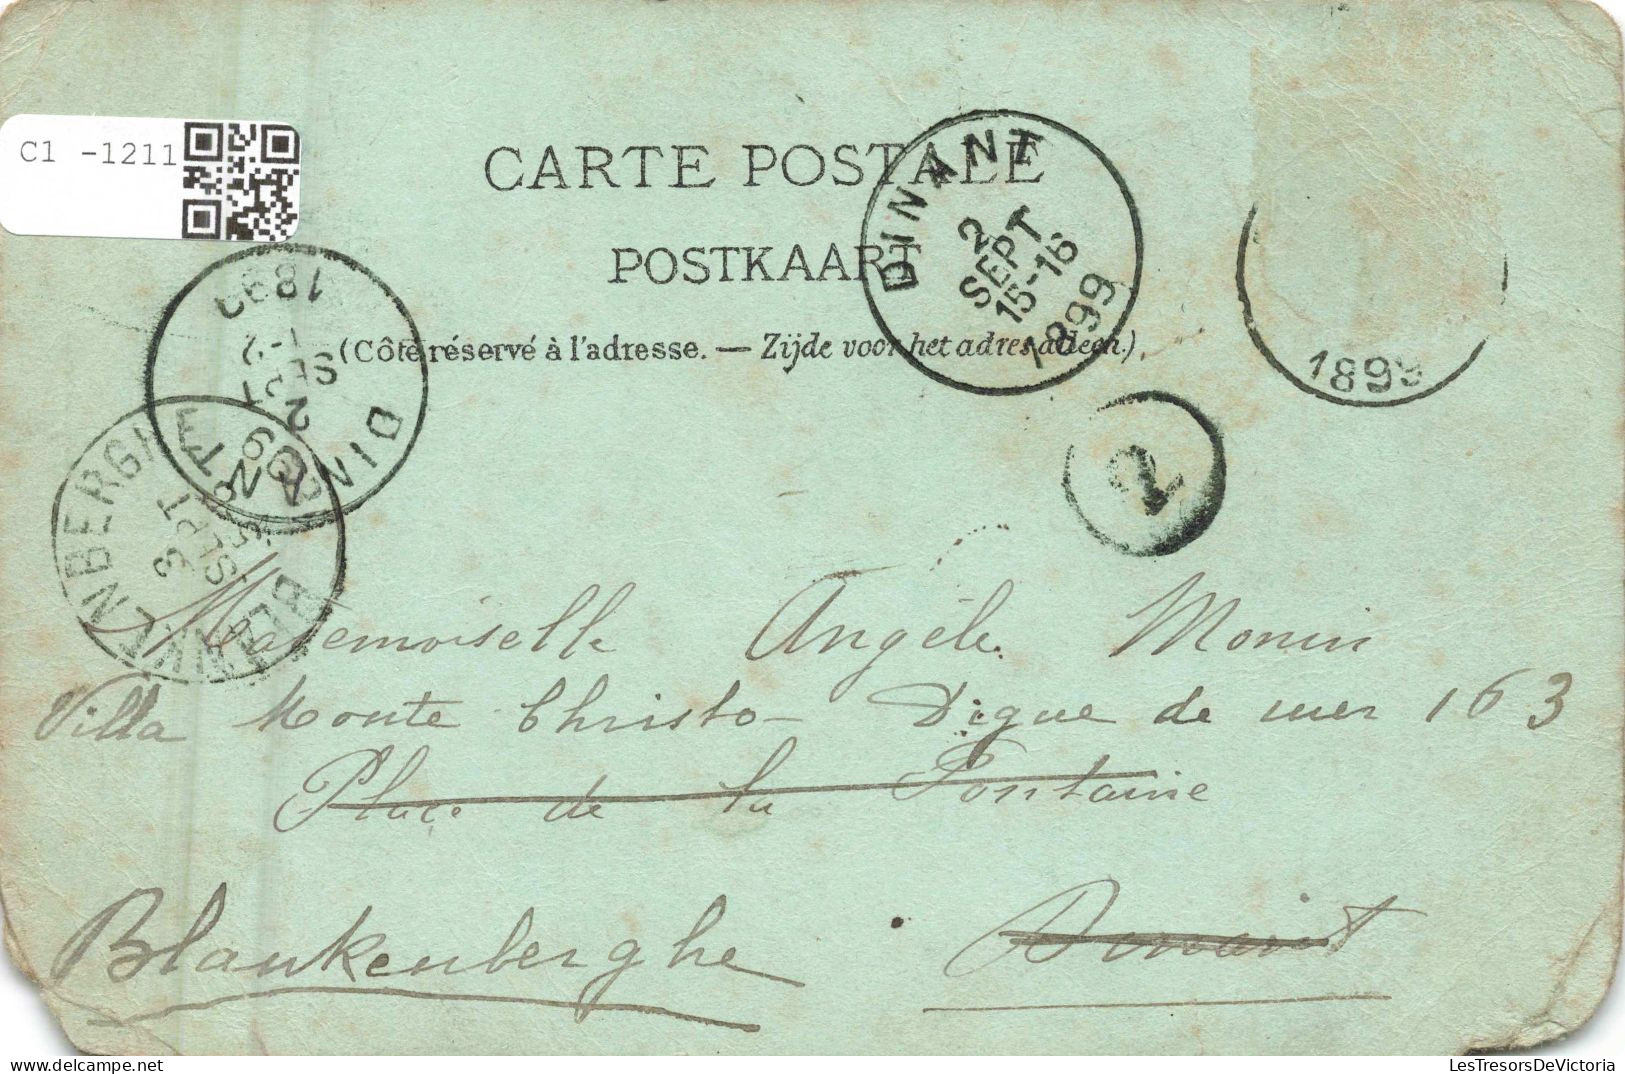 C1 -1211
CARTE POSTALE
POSTKAART
(Côté réservé à l'adresse. — Zijde voor het adres alleen.)
DINANT
2
SEPT
15-16
1899
1899
DINANT
2
SEPT
1899
2
BLANKENBERGHE
3
SEPT
Mademoiselle Angèle Monin
Villa Monte Christo - Digue de mer 163
Place de la Fontaine
Blankenberghe Dinant
www.LesTresorsDeVictoria.com